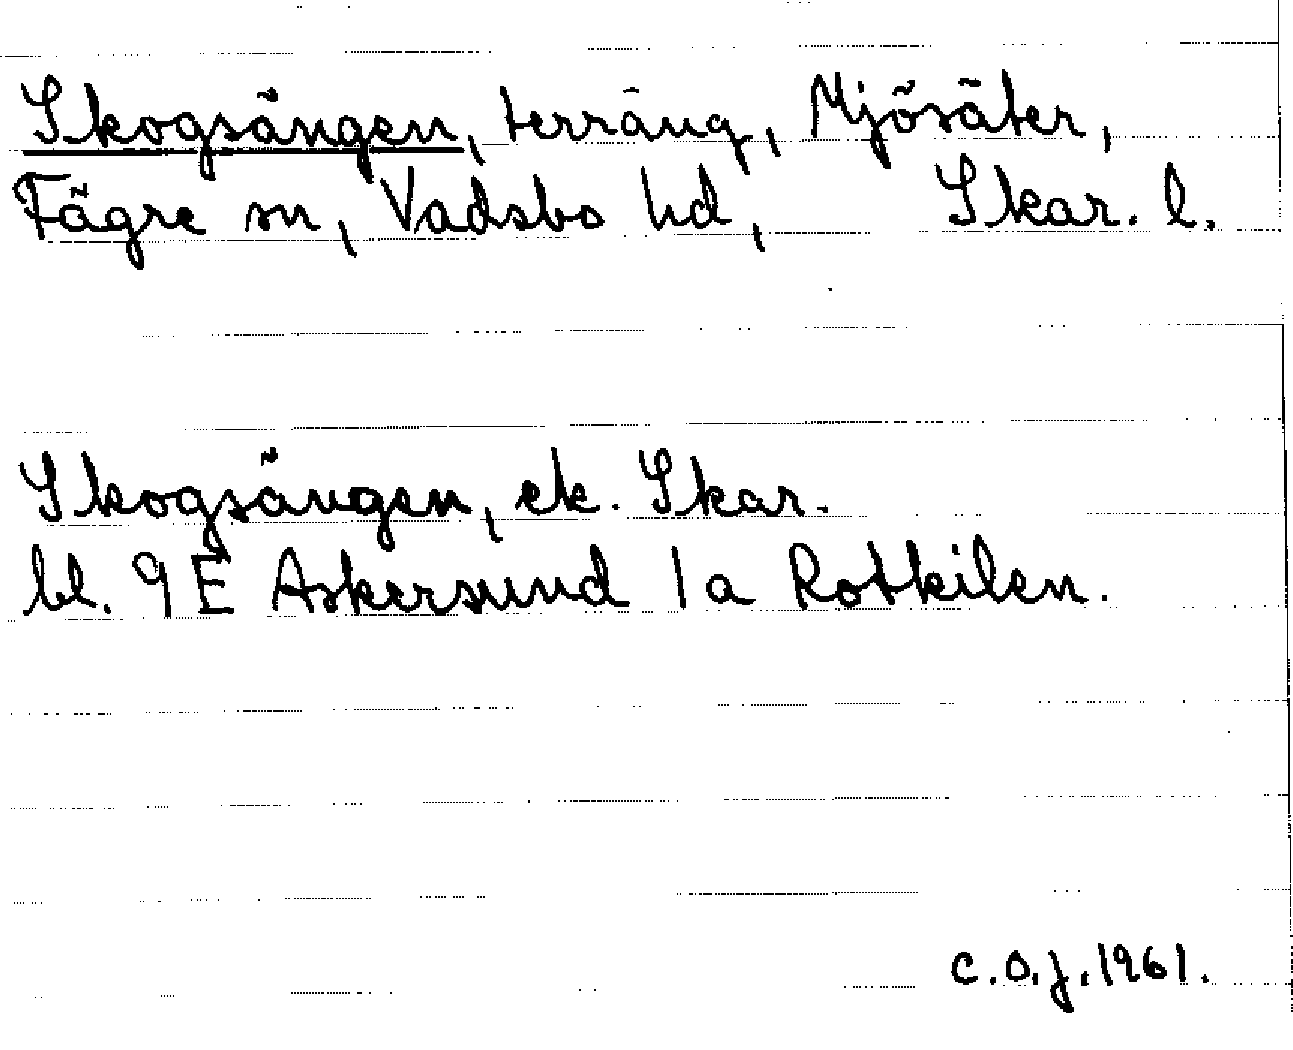 Skogsängen, terräng, Mjösäter,
Fägre sn, Vadsbo hd, Skar. l.
Skogsängen, ek. Skar.
bl. 9E Askersund 1a Rotkilen.
C.O.J. 1961.